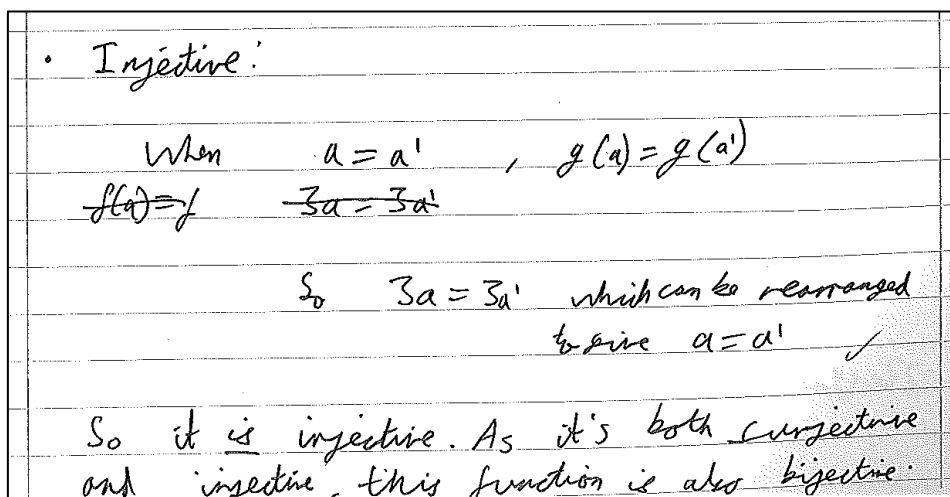 • Injective:
When a = a' , g(a) = g(a')
f(a) = f 3a = 3a'
So 3a = 3a' which can be rearranged
to give a = a' ✓
So it is injective. As it's both surjective
and injective, this function is also bijective.